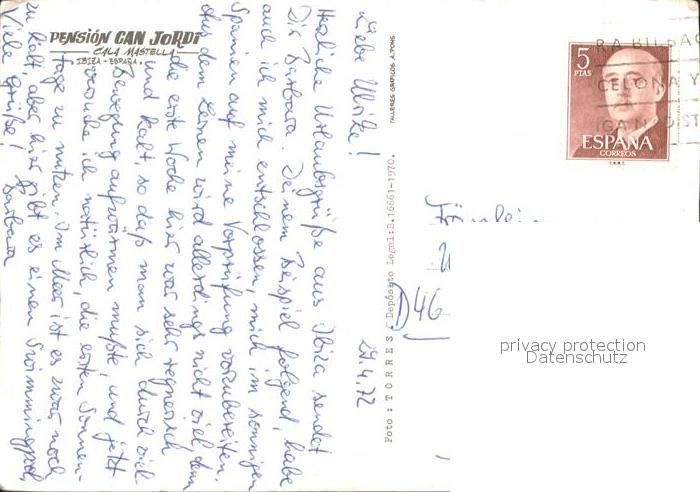 PENSIÓN CAN JORDI
CALA MASTELLA
IBIZA - ESPAÑA
29.4.72
Liebe Ulrike!
Herzliche Urlaubsgrüße aus Ibiza sendet
Dir Barbara. Deinem Beispiel folgend, habe
auch ich mich entschlossen, mich im sonnigen
Spanien auf meine Vorprüfung vorzubereiten.
Aus dem Lernen wird allerdings nicht viel, denn
die erste Woche hier war sehr regnerisch
und kalt, so daß man sich durch viel
Bewegung aufwärmen mußte, und jetzt
versuche ich natürlich, die ersten Sonnen-
tage zu nutzen. Im Meer ist es zwar noch
zu kalt, aber hier gibt es einen Swimmingpool.
Viele Grüße! Barbara
TALLERES GRAFICOS A. PONS
Foto: TORRES - Depósito Legal: B. 16661-1970.
5
PTAS
ESPAÑA
CORREOS
F.N.M.T.
RA BILBAO
CELONA Y
Fräulein
D 46
privacy protection
Datenschutz